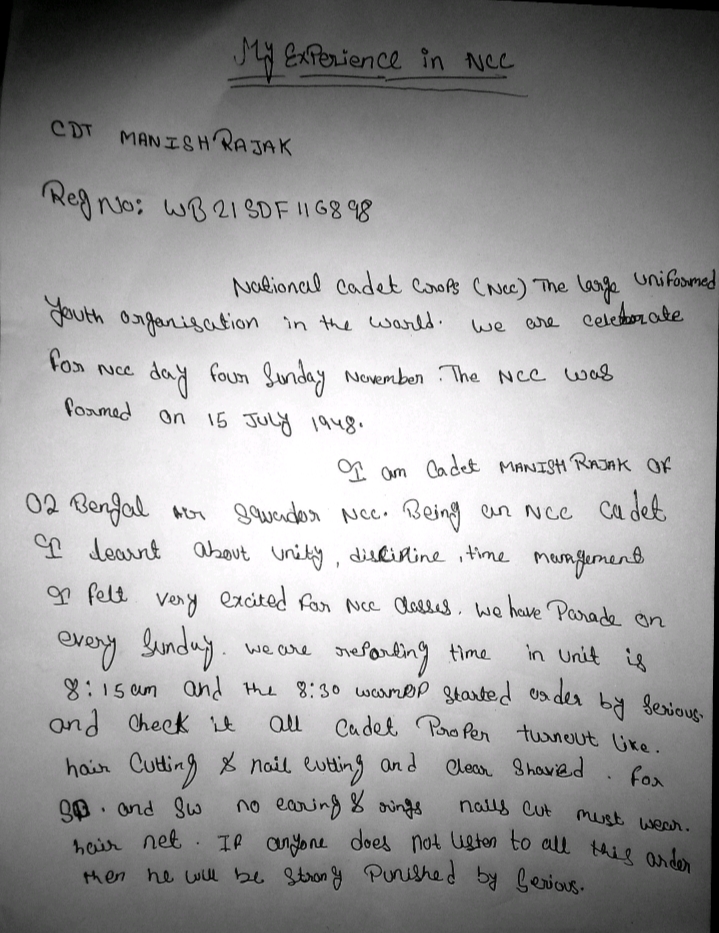 My Experience in NCC
CDT MANISH RAJAK
Reg No: WB 21 SDF 116898
National Cadet Corps (NCC) The large uniformed
Youth organisation in the world. We are celebrate
for NCC day four Sunday November. The NCC was
formed on 15 July 1948.
I am Cadet MANISH RAJAK OF
02 Bengal Air NCC. Being an NCC Cadet
I learnt about unity, time
I felt very excited for NCC classes. We have Parade on
every Sunday. we are reporting time in unit is
8:15 am and the 8:30 started order by Serious.
and check it all Cadet Proper turnout like.
hair Cutting & nail cutting and clean . For
and SW no earing & rings nails cut must wear.
hair net. If anyone does not listen to all this order
then he will be strong Punished by Serious.